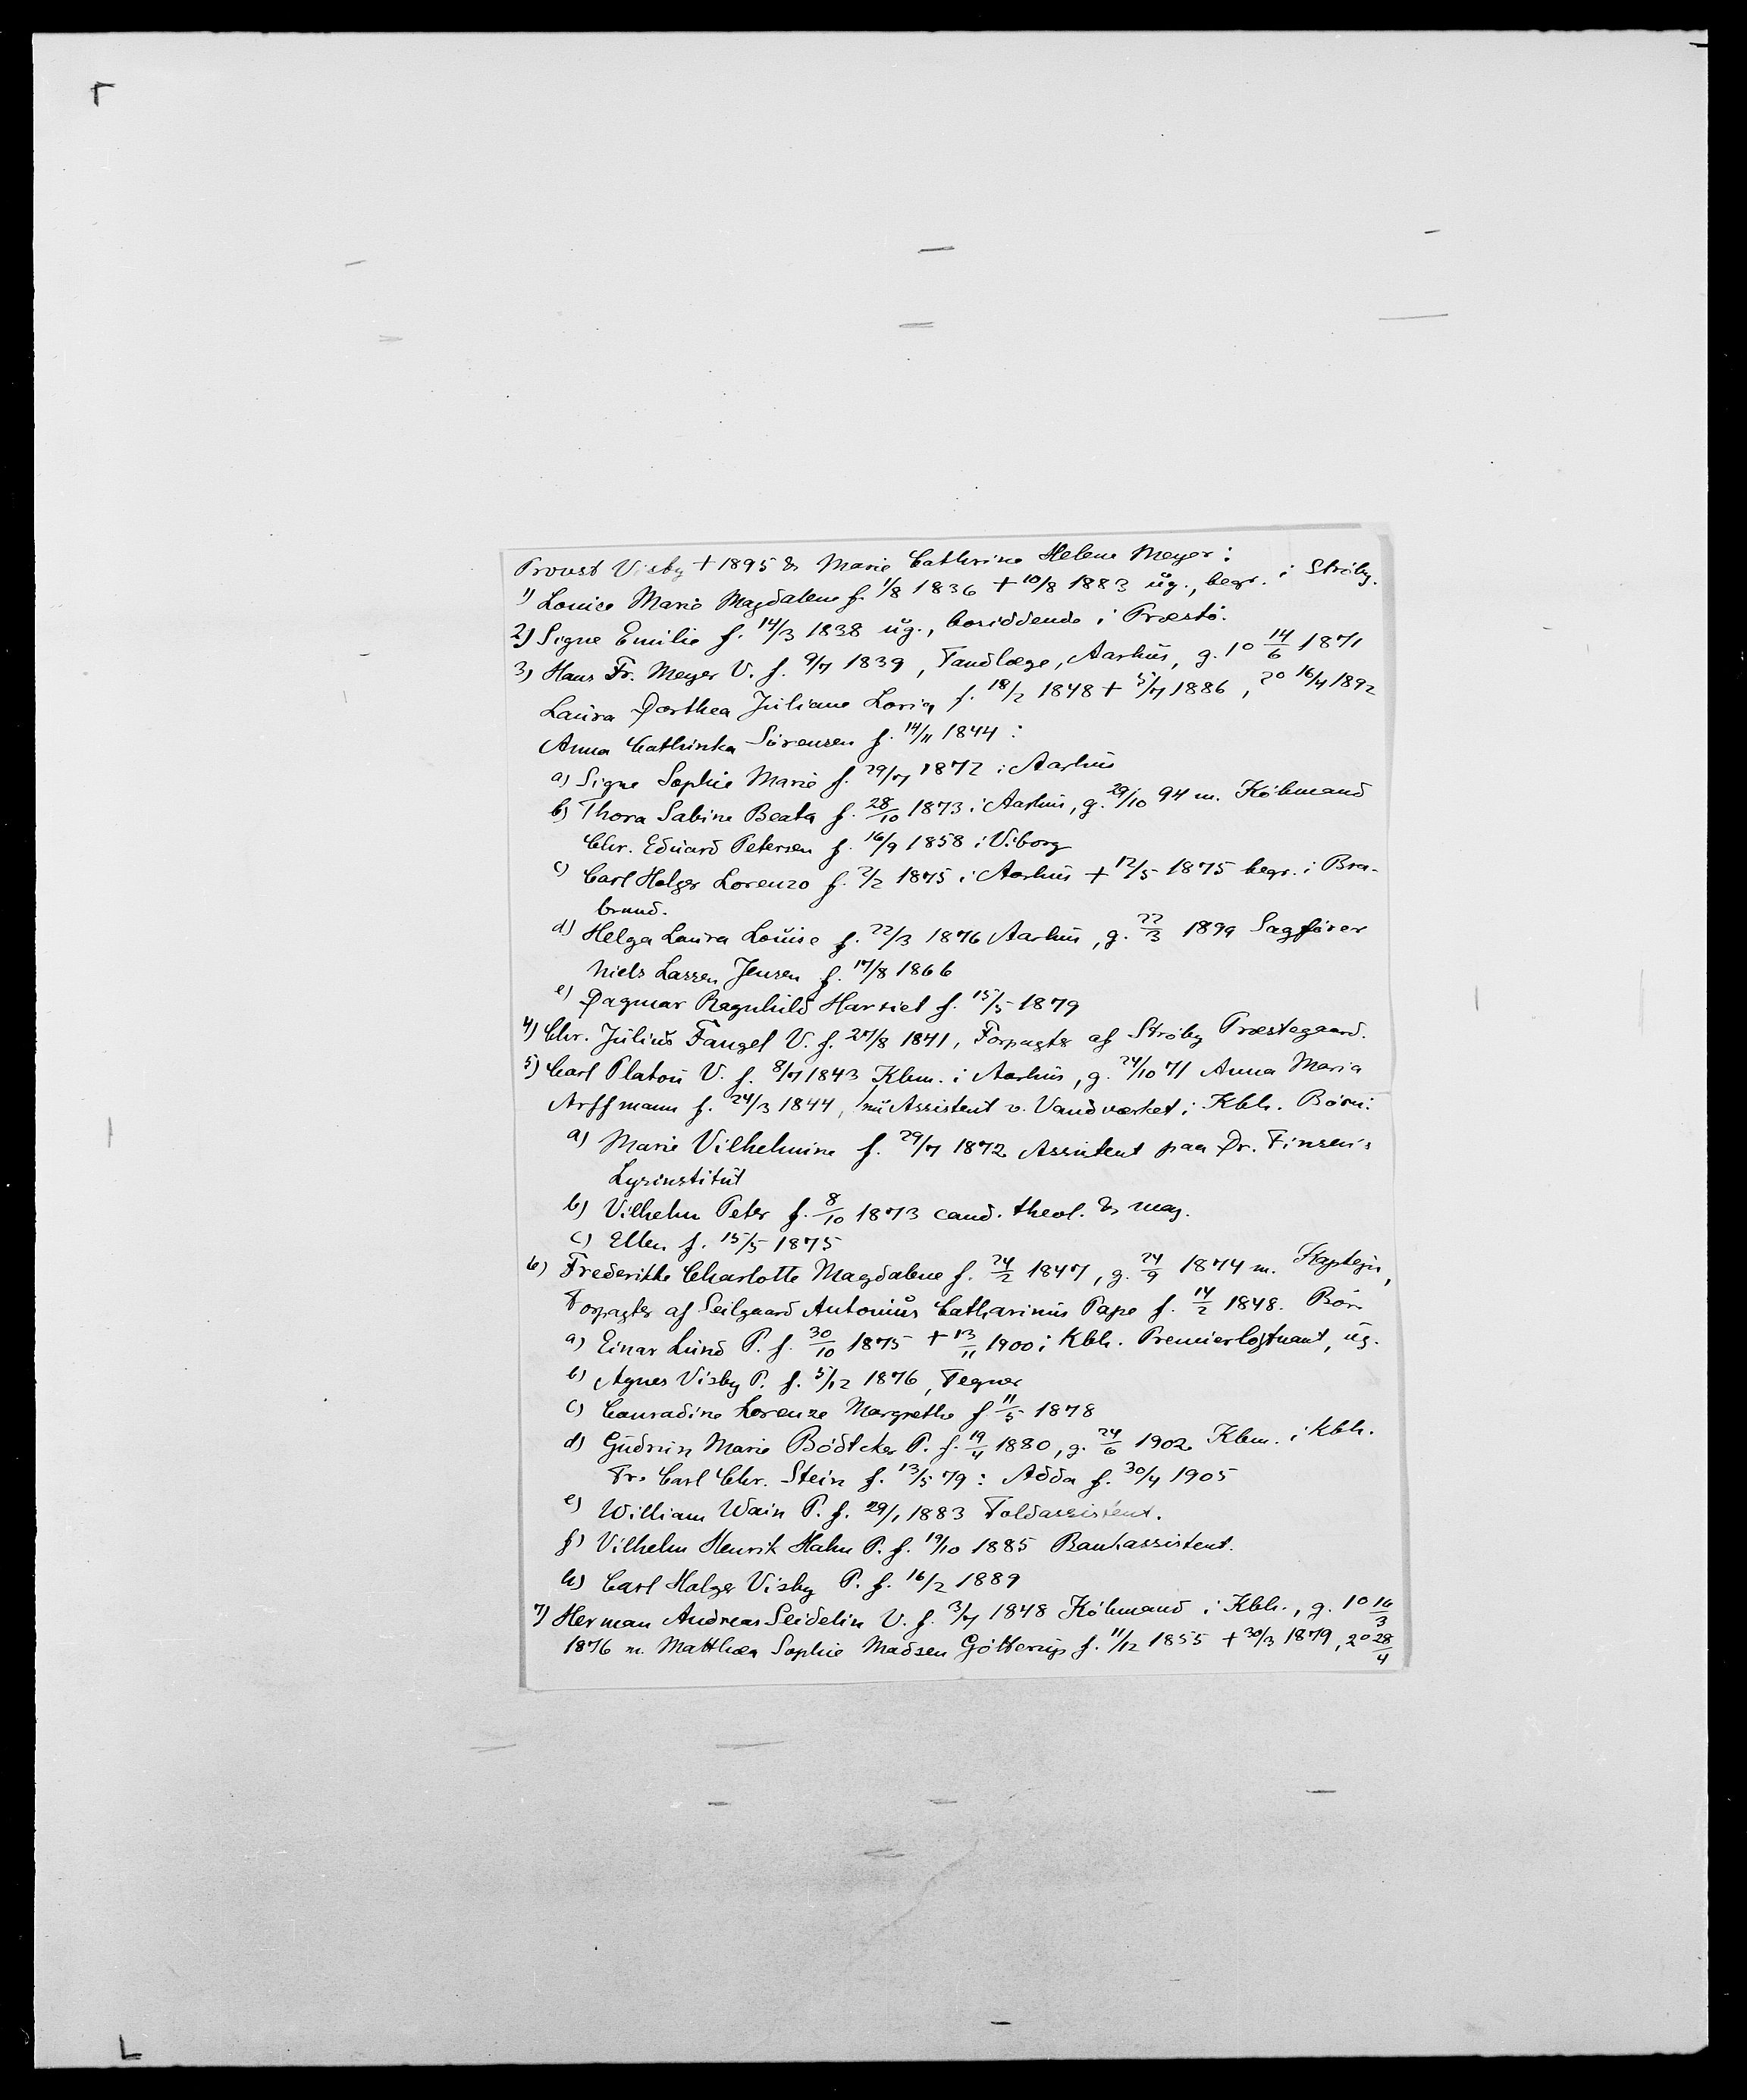 Provst Visby † 1895 & Marie Cathrine Helene Meyer:
1) Louise Marie Magdalene f. 1/8 1836 † 10/8 1883 ug., begr. i Strøby.
2) Signe Emilie f. 14/3 1838 ug., bosiddende i Præstö.
3) Hans Fr. Meyer V. f. 9/7 1839, Tandlæge, Aarhus, g. 1° 14/6 1871
Laura Dorthea Juliane Loria f. 18/2 1848 † 5/7 1886, 2° 16/4 1892
Anna Cathinka Sörensen f. 14/11 1844:
a) Signe Sophie Marie f. 29/7 1872 i Aarhus
b) Thora Sabine Beata f. 28/10 1873 i Aarhus, g. 29/10 94 m. Köbmand
Chr. Eduard Petersen f. 16/9 1858 i Viborg
c) Carl Holger Lorenzo f. 2/2 1875 i Aarhus † 12/5 1875 begr. i Bra-
brand.
d) Helga Laura Louise f. 22/3 1876 Aarhus, g. 22/3 1899 Sagförer
Niels Lassen Jensen f. 17/8 1866
e) Dagmar Ragnhild Harriet f. 15/5 1879
4) Chr. Julius Fangel V. f. 27/8 1841, Forpagter af Ströby Præstegaard.
5) Carl Platou V. f. 8/7 1843 Kbm. i Aarhus, g. 24/10 71 Anna Maria
Arffmann f. 24/3 1844, nu Assistent v. Vandværket i Kbh. Börn:
a) Marie Vilhelmine f. 29/7 1872 Assistent paa Dr. Finsen's
Lysinstitut
b) Vilhelm Peter f. 8/10 1873 cand. theol. & mag.
c) Ellen f. 15/5 1875
6) Frederikke Charlotte Magdalene f. 24/2 1847, g. 24/9 1874 m. Kaptejn,
Forpagter af Seilgaard Antonius Catharinus Pape f. 14/2 1848. Börn
a) Einar Lund P. f. 30/10 1875 † 13/11 1900 i Kbh. Premierlöjtnant, ug.
b) Agnes Visby P. f. 5/12 1876, Tegner
c) Conradine Lorenze Margrethe f. 11/5 1878
d) Gudrun Marie Bödtcher P. f. 19/4 1880, g. 24/6 1902 Kbm. i Kbh.
Fr. Carl Chr. Stein f. 13/5 79: Adda f. 30/4 1905
e) William Wain P. f. 29/1 1883 Toldassistent.
f) Vilhelm Henrik Hahn P. f. 19/10 1885 Bankassistent.
h) Carl Holger Visby P. f. 16/2 1889
7) Herman Andreas Seidelin V. f. 3/7 1848 Köbmand i Kbh., g. 1° 16/3
1876 m. Matthea Sophie Madsen Götterup f. 11/12 1855 † 30/3 1879, 2° 28/4